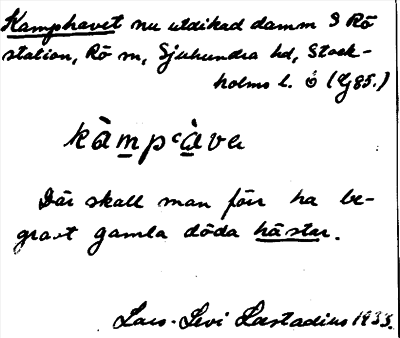 Kamphavet nu utdikad damm S Rö
station, Rö sn, Sjuhundra hd, Stock-
holms l. ö (Lj85.)
kàmpcàva
Där skall man förr ha be-
gravt gamla döda hästar.
Lars-Levi Læstadius 1933.